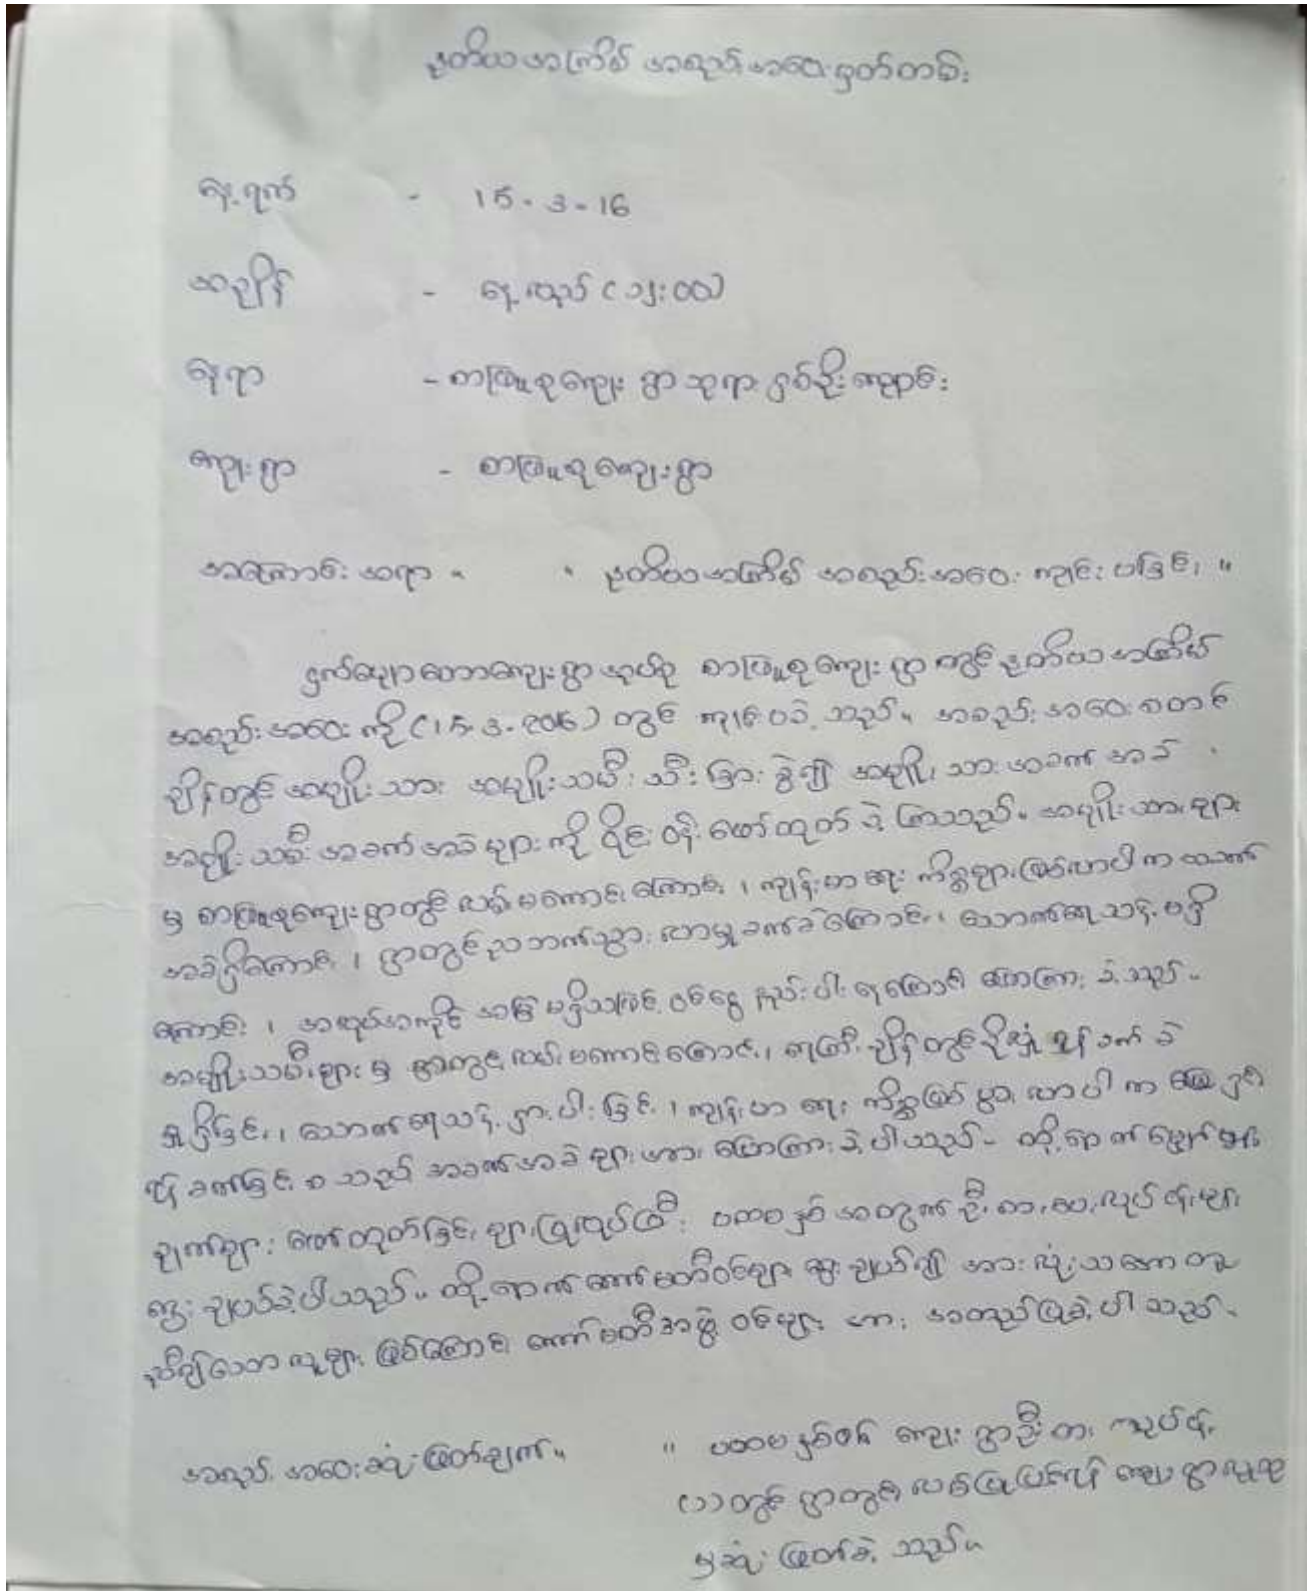 ဒုတိယအကြိမ် အစည်းအဝေးမှတ်တမ်း
နေ့ရက် - 15-3-16
အချိန် - နေ့လည် (၁၂:၀၀)
နေရာ - စာဖြူစုကျေးရွာ ဘုရားရှစ်ဦးကျောင်း
ကျေးရွာ - စာဖြူစုကျေးရွာ
အကြောင်းအရာ ။ " ဒုတိယအကြိမ် အစည်းအဝေး ကျင်းပခြင်း "
ငှက်ပျောတောကျေးရွာအုပ်စု စာဖြူစုကျေးရွာတွင် ဒုတိယအကြိမ်
အစည်းအဝေးကို (15-3-2016) တွင် ကျင်းပခဲ့သည်။ အစည်းအဝေးစတင်
ချိန်တွင် အမျိုးသား အမျိုးသမီး သီးခြားခွဲ၍ အမျိုးသားအခက်အခဲ
အမျိုးသမီး အခက်အခဲများကို ဝိုင်းဝန်းဖော်ထုတ်ခဲ့ကြသည်။ အမျိုးသားများ
မှ စာဖြူစုကျေးရွာတွင် လမ်းမကောင်းကြောင်း ၊ ကျန်းမာရေး ကိစ္စများဖြစ်လာပါက အခက်
အခဲရှိကြောင်း ၊ ရွာတွင် ညဘက်သွားလာမှုခက်ခဲကြောင်း ၊ သောက်ရေသန့်မရှိ
ကြောင်း ၊ အလုပ်အကိုင် အမြဲမရှိသဖြင့် ဝင်ငွေနည်းပါးရကြောင်း ပြောကြားခဲ့သည်။
အမျိုးသမီးများမှ ရွာတွင် လမ်းမကောင်းကြောင်း ၊ ရေကြီးချိန်တွင် ပို၍ ခက်ခဲ
မှုရှိခြင်း ၊ သောက်ရေသန့်ရှားပါးခြင်း ၊ ကျန်းမာရေး ကိစ္စဖြစ်ပွားလာပါက
ခက်ခြင်း စသည့် အခက်အခဲများအား ပြောကြားခဲ့ပါသည်။ ထို့နောက် မျှော်မှန်း
ချက်များ ဖော်ထုတ်ခြင်းများပြုလုပ်ပြီး ပထမနှစ်အတွက် ဦးစားပေးလုပ်ငန်းများ
ရွေးချယ်ခဲ့ပါသည်။ ထို့နောက် ကော်မတီဝင်များ ရွေးချယ်၍ အားလုံးသဘောတူ
ညီသောသူများ ဖြစ်ကြောင်း ကော်မတီအဖွဲ့ဝင်များအား အတည်ပြုခဲ့ပါသည်။
အစည်းအဝေးဆုံးဖြတ်ချက်။ " ပထမနှစ်တွင် ကျေးရွာဦးစားလုပ်ငန်း
တွင် ရွာတွင်းလမ်းပြုပြင်ရန် ကျေးရွာလူထု
မှဆုံးဖြတ်ခဲ့သည်။